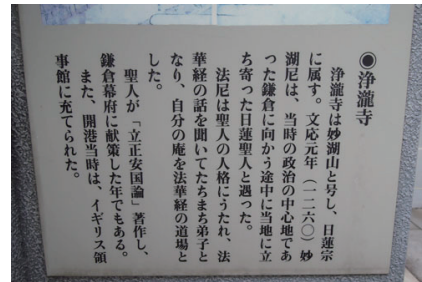 ◉浄瀧寺
浄瀧寺は妙湖山と号し、日蓮宗
に属す。文応元年(一二六〇)妙
湖尼は、当時の政治の中心地であ
った鎌倉に向かう途中に当地に立
ち寄った日蓮聖人と遇った。
法尼は聖人の人格にうたれ、法
華経の話を聞いてたちまち弟子と
なり、自分の庵を法華経の道場と
した。
聖人が「立正安国論」著作し、
鎌倉幕府に献策した年でもある。
また、開港当時は、イギリス領
事館に充てられた。